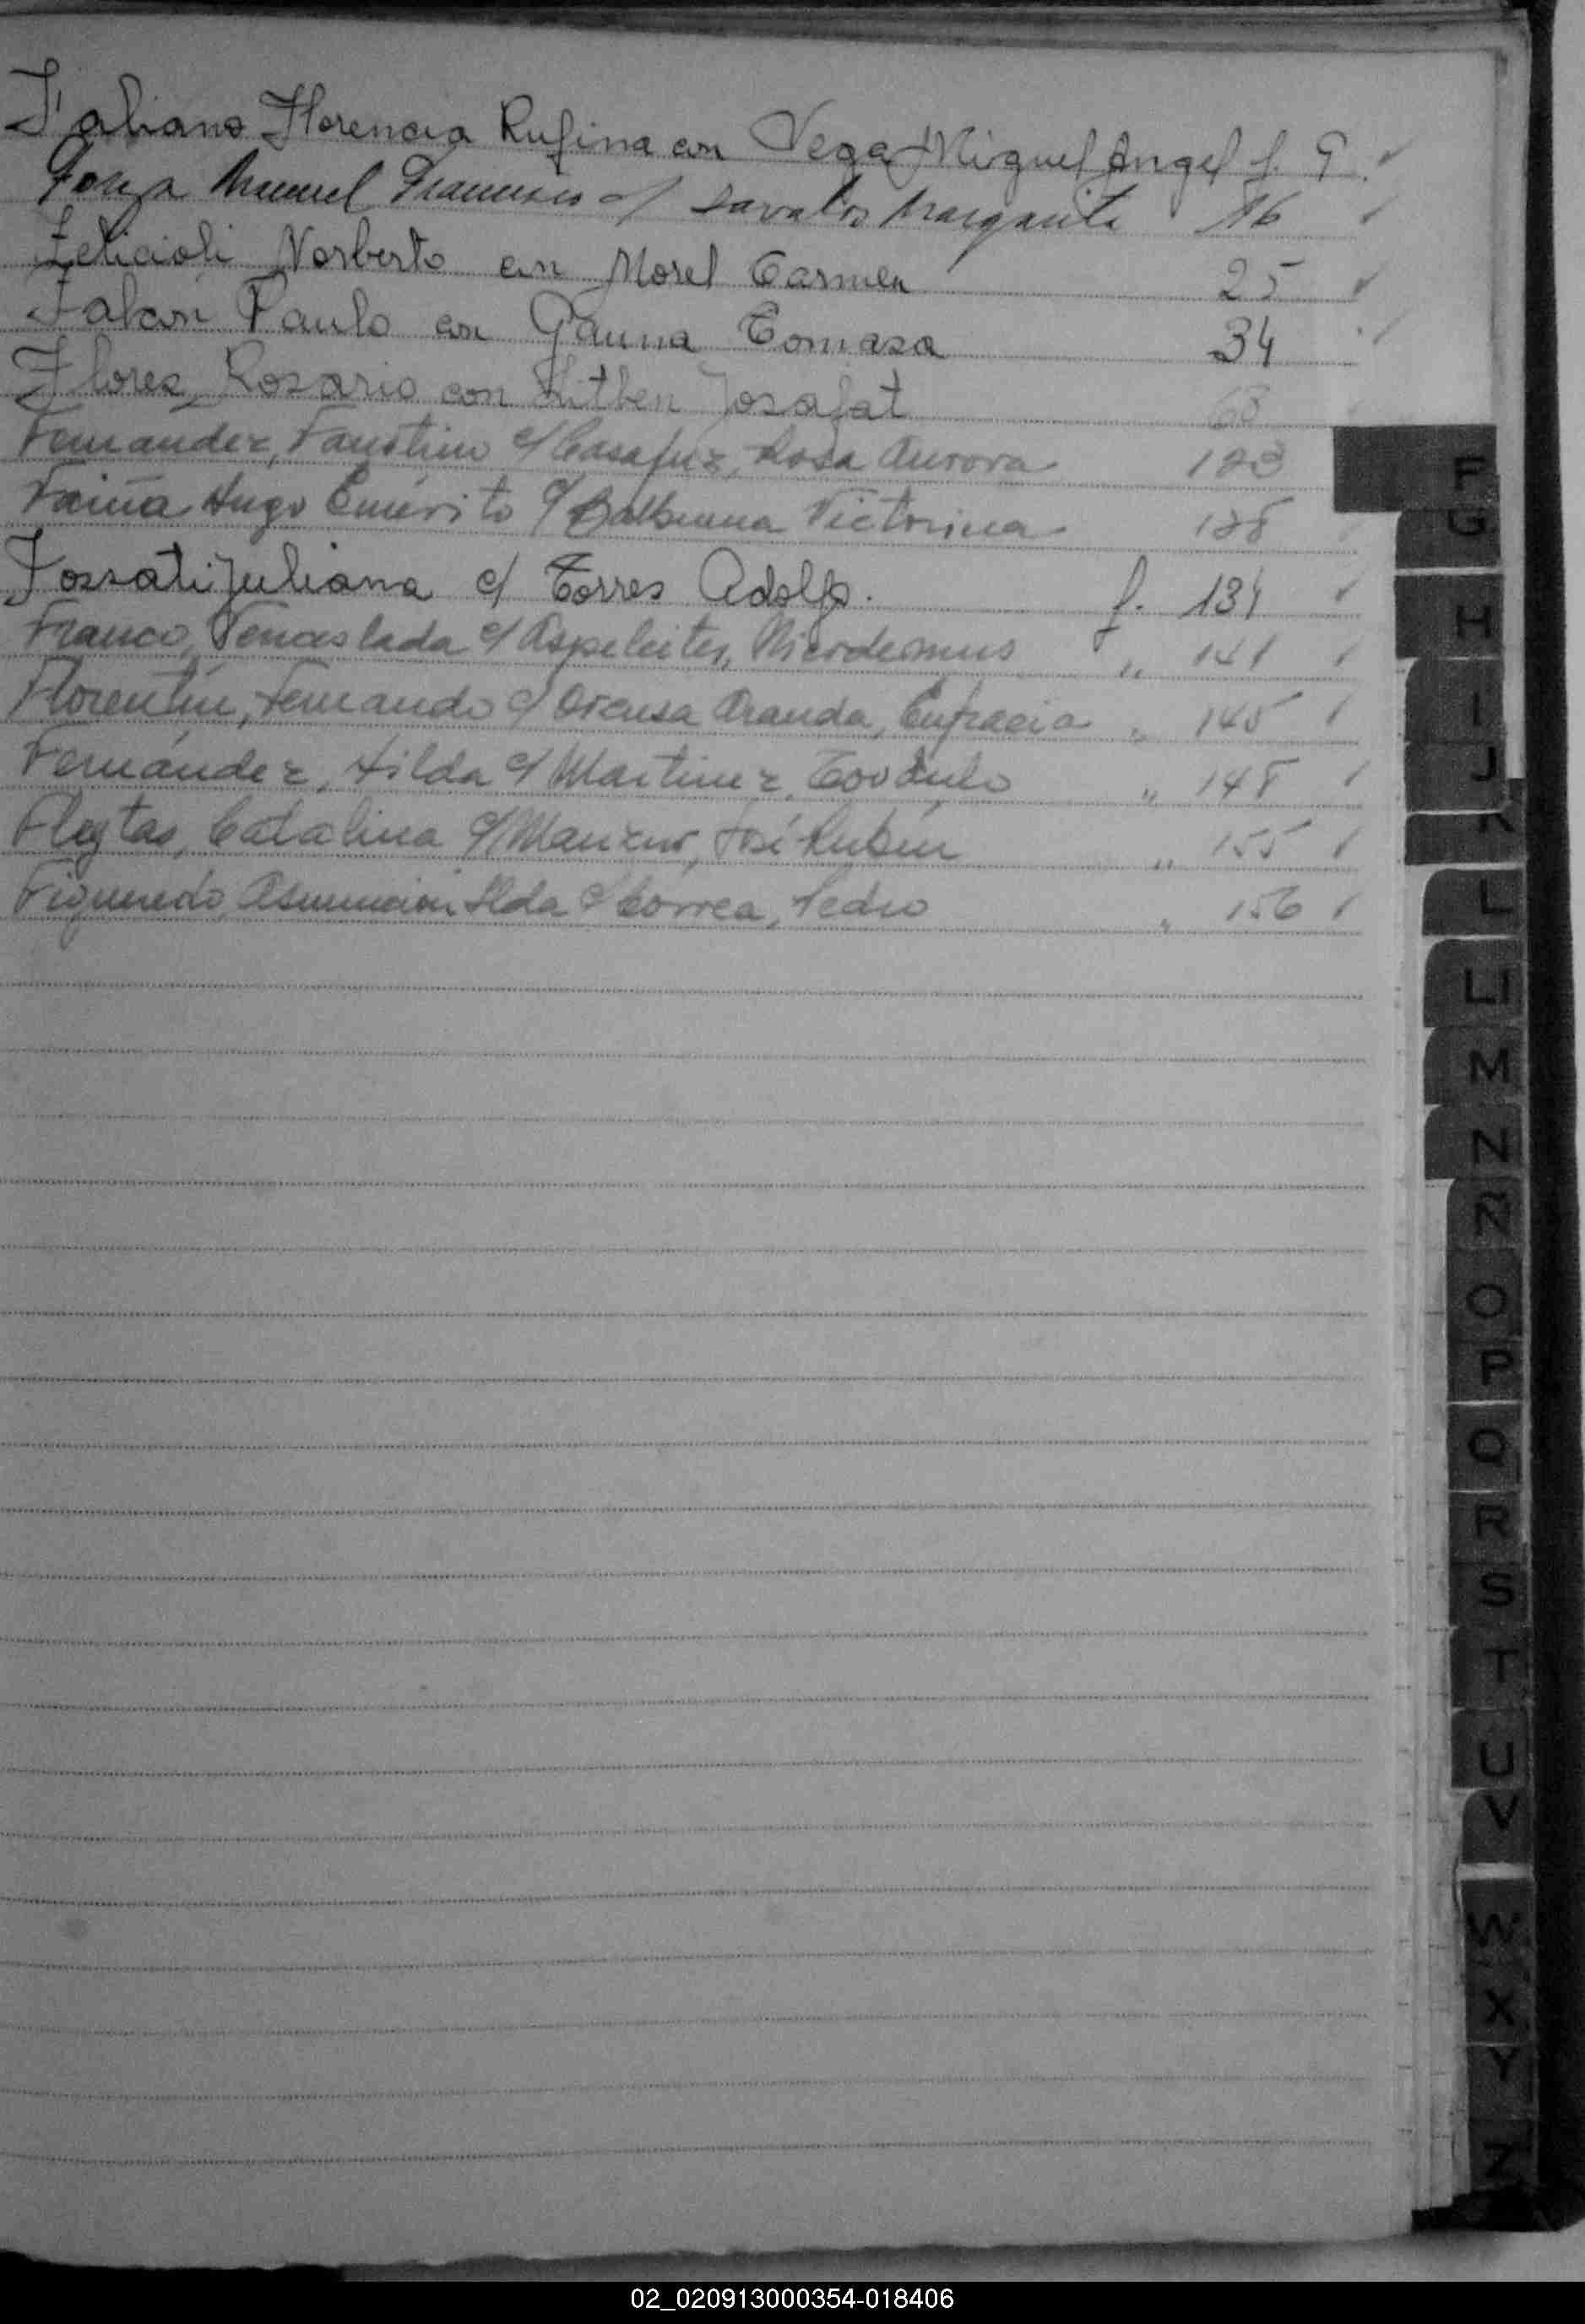 Fabiano Florencia Rufina con Vega Miguel Angel f. 9
Manuel Francisco c/ Davalos Margarita 16
Felicioli Norberto con Morel Carmen 25
Falcón Paulo con Gauna Tomasa 34
Flores Rosario con Josafat 68
Fernandez, Faustino c/ Casafuz, Rosa Aurora 123
Fariña Hugo Emérito c/ Balbuena Victorina 128
Fossati Juliana c/ Torres Adolfo. f. 134
Franco, Venceslada c/ Nicodemus " 141
Florentín, Fernando c/ Aranda, Eufracia " 145
Fernández, Hilda c/ Martinez, Teodulo " 148
Fleytas, Catalina c/ Manzur, José Rubén " 155
Figueredo, Asunción Ilda c/ Correa, Pedro " 156
F
G
H
I
J
K
L
Ll
M
N
Ñ
O
P
Q
R
S
T
U
V
W
X
Y
Z
02_020913000354-018406